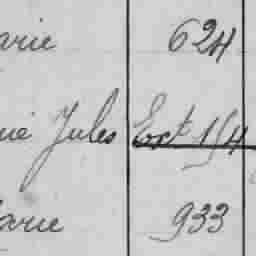 arie 624
Jules Ext 154
arie 933